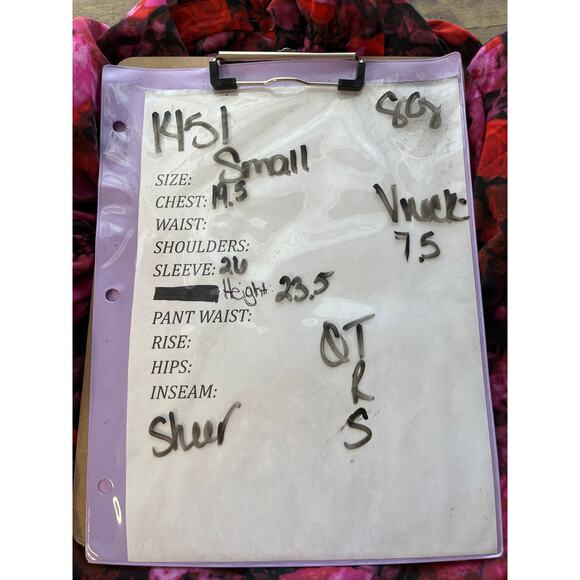 1451
SIZE: Small
CHEST: 19.5
WAIST:
SHOULDERS:
SLEEVE: 26
Height: 23.5
PANT WAIST:
RISE:
HIPS:
INSEAM:
Sheer
Vneck:
7.5
R
S